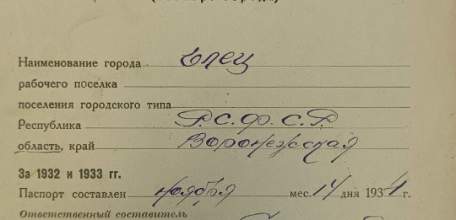 Наименование города Елец
рабочего поселка
поселения городского типа
Республика Р.С.Ф.С.Р.
область, край Воронежская
За 1932 и 1933 гг.
Паспорт составлен ноября мес. 14 дня 1934 г.
Ответственный составитель